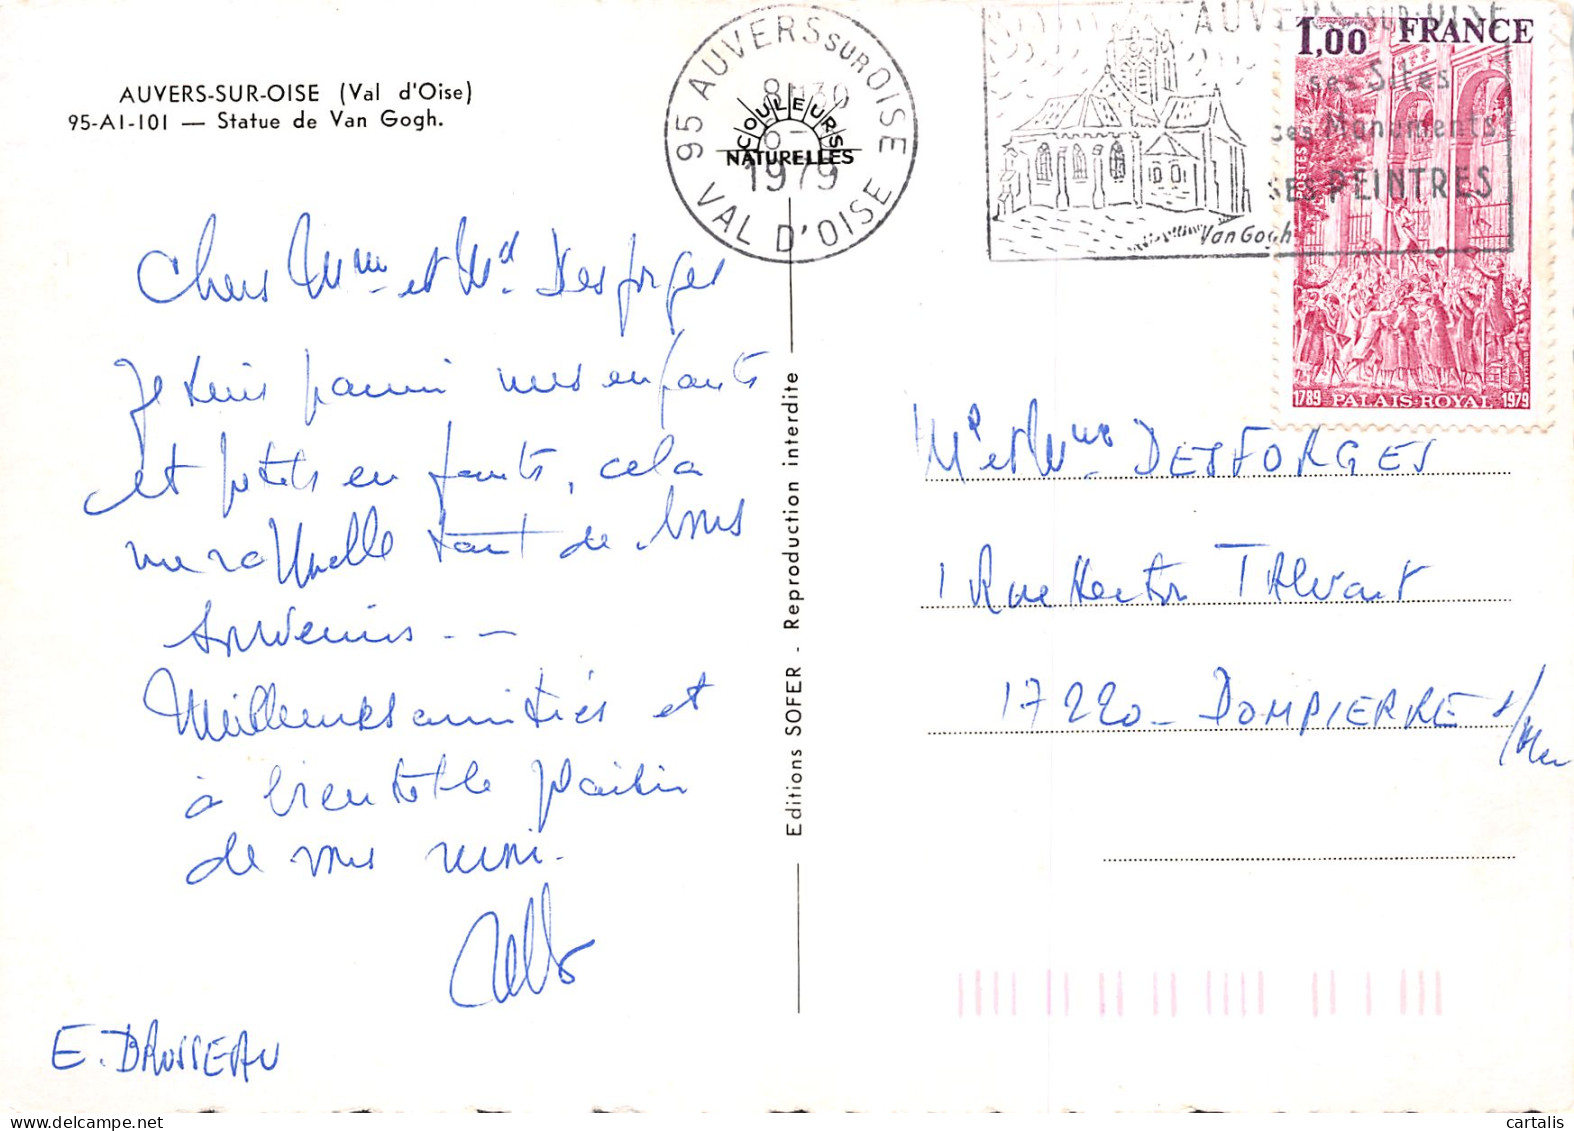 AUVERS-SUR-OISE (Val d'Oise)
95-A1-101 — Statue de Van Gogh.
Chers Mme et Mr Desforges
Je suis parmi mes enfants
et petits enfants, cela
me rappelle tant de bons
souvenirs - -
Meilleures amitiés et
à bientôt le plaisir
de vous revoir.
E. BROSSEAU
Editions SOFER - Reproduction interdite
COULEURS
NATURELLES
95 AUVERS SUR OISE
8H30
6-
1979
VAL D'OISE
AUVERS-SUR-OISE
ses Sites
ses Monuments
SES PEINTRES
Van Gogh
1,00 FRANCE
POSTES
1789 PALAIS-ROYAL 1979
Mr et Mme DESFORGES
1 Rue Hector TALVART
17220 - DOMPIERRE s/Mer
cartalis.com